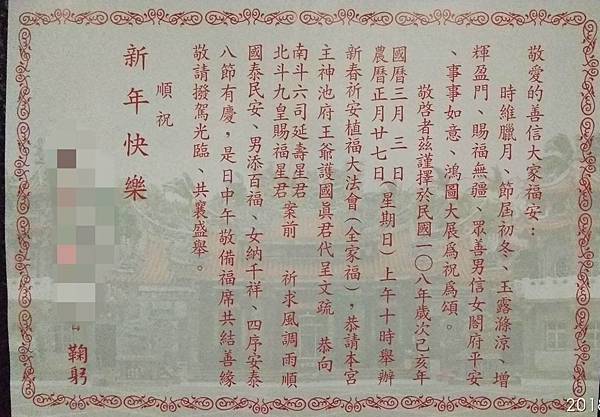 敬愛的善信大家福安：
時維臘月、節屆初冬、玉露滌涼、增
輝盈門、賜福無疆，眾善男信女閤府平安
、事事如意、鴻圖大展為祝為頌。
敬啓者茲謹擇於民國一〇八年歲次己亥年
國曆三月三日
農曆正月廿七日(星期日)上午十時舉辦
新春祈安植福大法會(全家福)，恭請本宮
主神池府王爺護國眞君代呈文疏　恭向
南斗六司延壽星君
北斗九皇賜福星君　案前　祈求風調雨順
國泰民安、男添百福、女納千祥、四序安泰
八節有慶，是日中午敬備福席共結善緣
敬請撥駕光臨、共襄盛舉。
順祝
新年快樂
鞠躬
2018